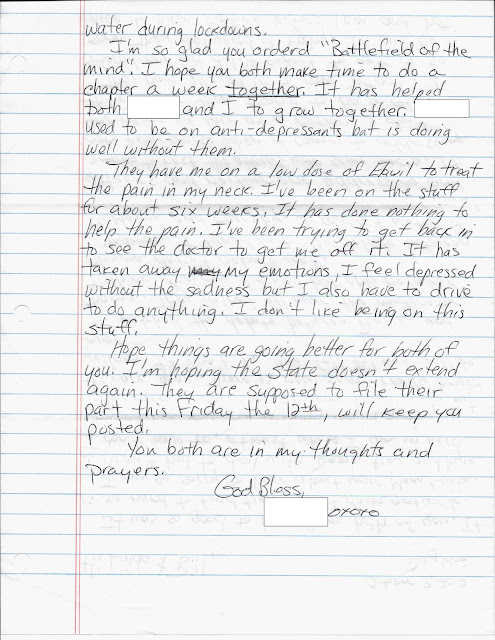 water during lockdowns.
I'm so glad you orderd "Battlefield of the
mind". I hope you both make time to do a
chapter a week together. It has helped
both and I to grow together.
used to be on anti-depressants but is doing
well without them.
They have me on a low dose of Elavil to treat
the pain in my neck. I've been on the stuff
for about six weeks. It has done nothing to
help the pain. I've been trying to get back in
to see the doctor to get me off it. It has
taken away my emotions. I feel depressed
without the sadness but I also have to drive
to do anything. I don't like being on this
stuff.
Hope things are going better for both of
you. I'm hoping the State doesn't extend
again. They are supposed to file their
part this Friday the 12th, will keep you
posted.
You both are in my thoughts and
prayers.
God Bless,
oxoxo